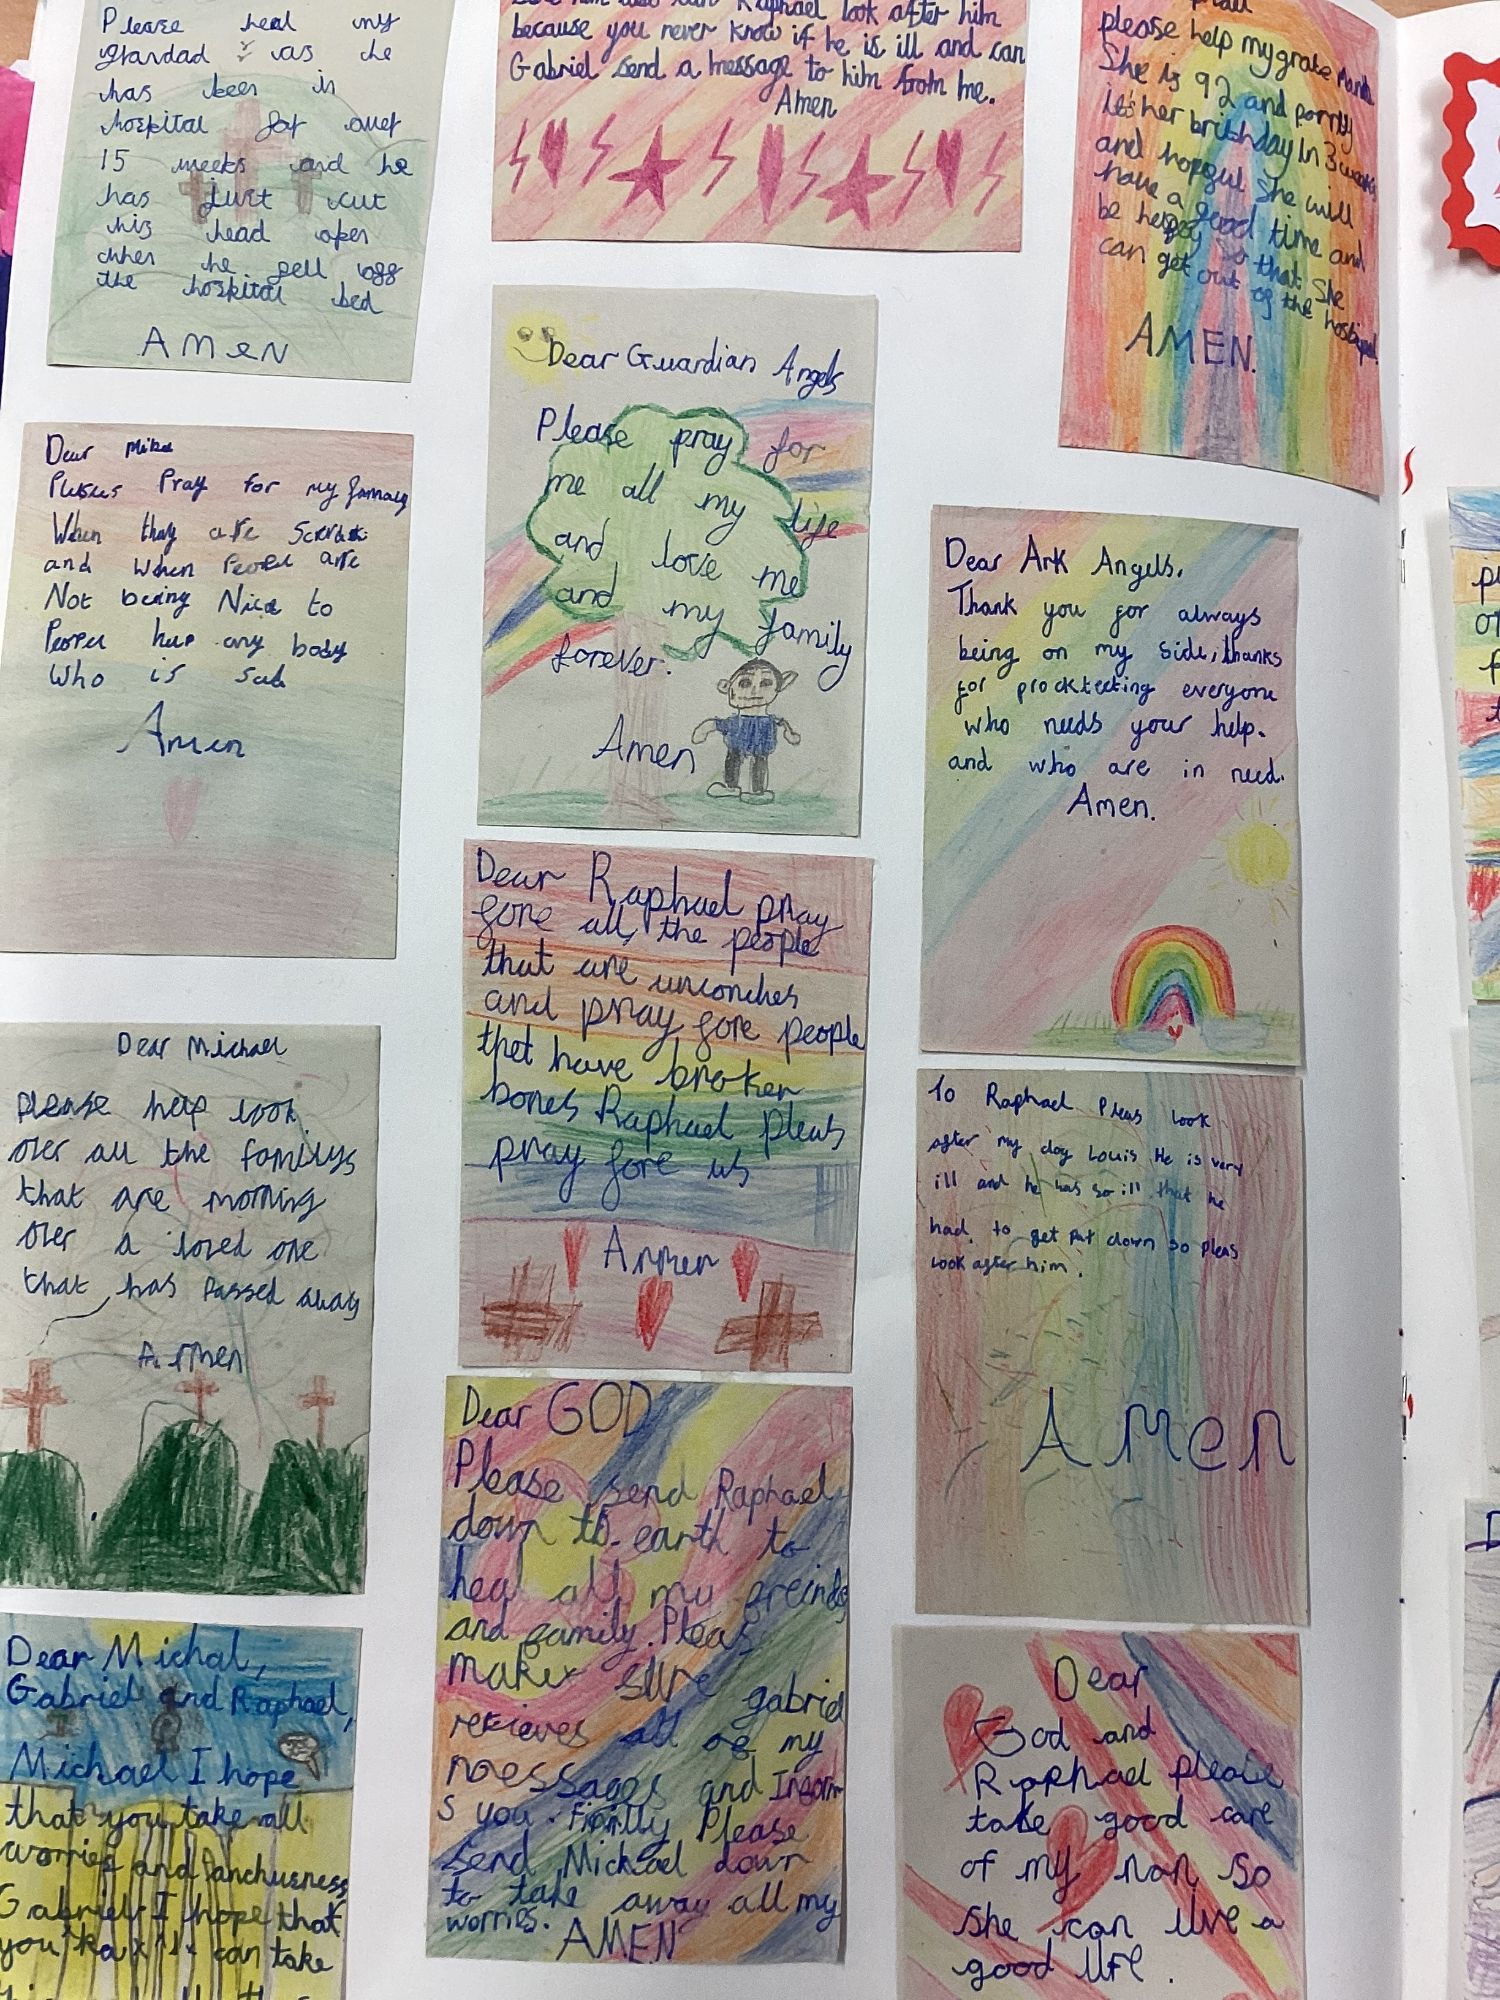 Please heal my
grandad as he
has been in
hospital for over
15 weeks and he
has just cut
his head open
when he fell off
the hospital bed
AMeN
Dear Mike
Pray for my
When they are
and when are
Not being Nice to
any body
Who is sad
Amen
Dear Michael
please help look
over all the familys
that are morning
over a loved one
that has Passed away
Amen
Dear Michal,
Gabriel and Raphael,
Michael I hope
that you take all
worries and
Gabriel I hope that
you can take
him also can Raphael look after him
because you never know if he is ill and can
Gabriel send a message to him from me.
Amen
Dear Guardian Angels
Please pray for
me all my life
and love me
and my family
forever.
Amen
Dear Raphael pray
fore all the people
that are unconches
and pray fore people
thet have broken
bones Raphael pleas
pray fore us
Amen
Dear GOD
Please send Raphael
down to earth to
heal all my freinds
and family. Pleas
make sure gabriel
recieves all of my
messages and Inform
s you. Finlly Please
send Michael down
to take away all my
worries.
AMEN
please help my grate nana
She is 92 and porrly
it's her brithday In 3 weeks
and hopeful She will
have a good time and
be happy so that She
can get out of the hospital.
AMEN.
Dear Ark Angels.
Thank you for always
being on my side, thanks
for prockteeting everyone
who needs your help.
and who are in need.
Amen.
To Raphael Pleas look
after my dog Louis He is very
ill and he was so ill that he
had to get put down so pleas
look after him.
Amen
Dear
God and
Raphael please
take good care
of my nan so
she can live a
good life.